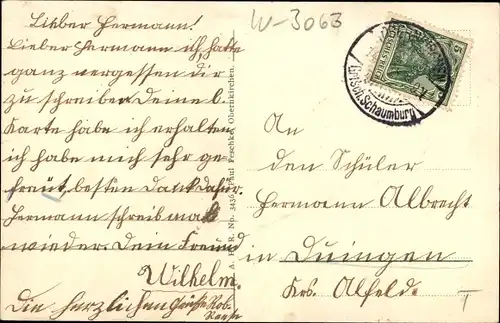 Lieber Hermann!
Lieber Hermann ich hatte
ganz vergessen dir
zu schreiben deine l.
Karte habe ich erhalten
ich habe mich sehr ge
freut, besten Dank dafür.
Hermann schreib mal
wieder. Dein Freund
Wilhelm.
Die herzlichen Grüße Rob.
W-3063
DEUTSCHES REICH
5
(Grfsch. Schaumburg)
Paul Peschke, Obernkirchen.
An
den Schüler
Hermann Albrecht
in Duingen
Krs. Alfeld.